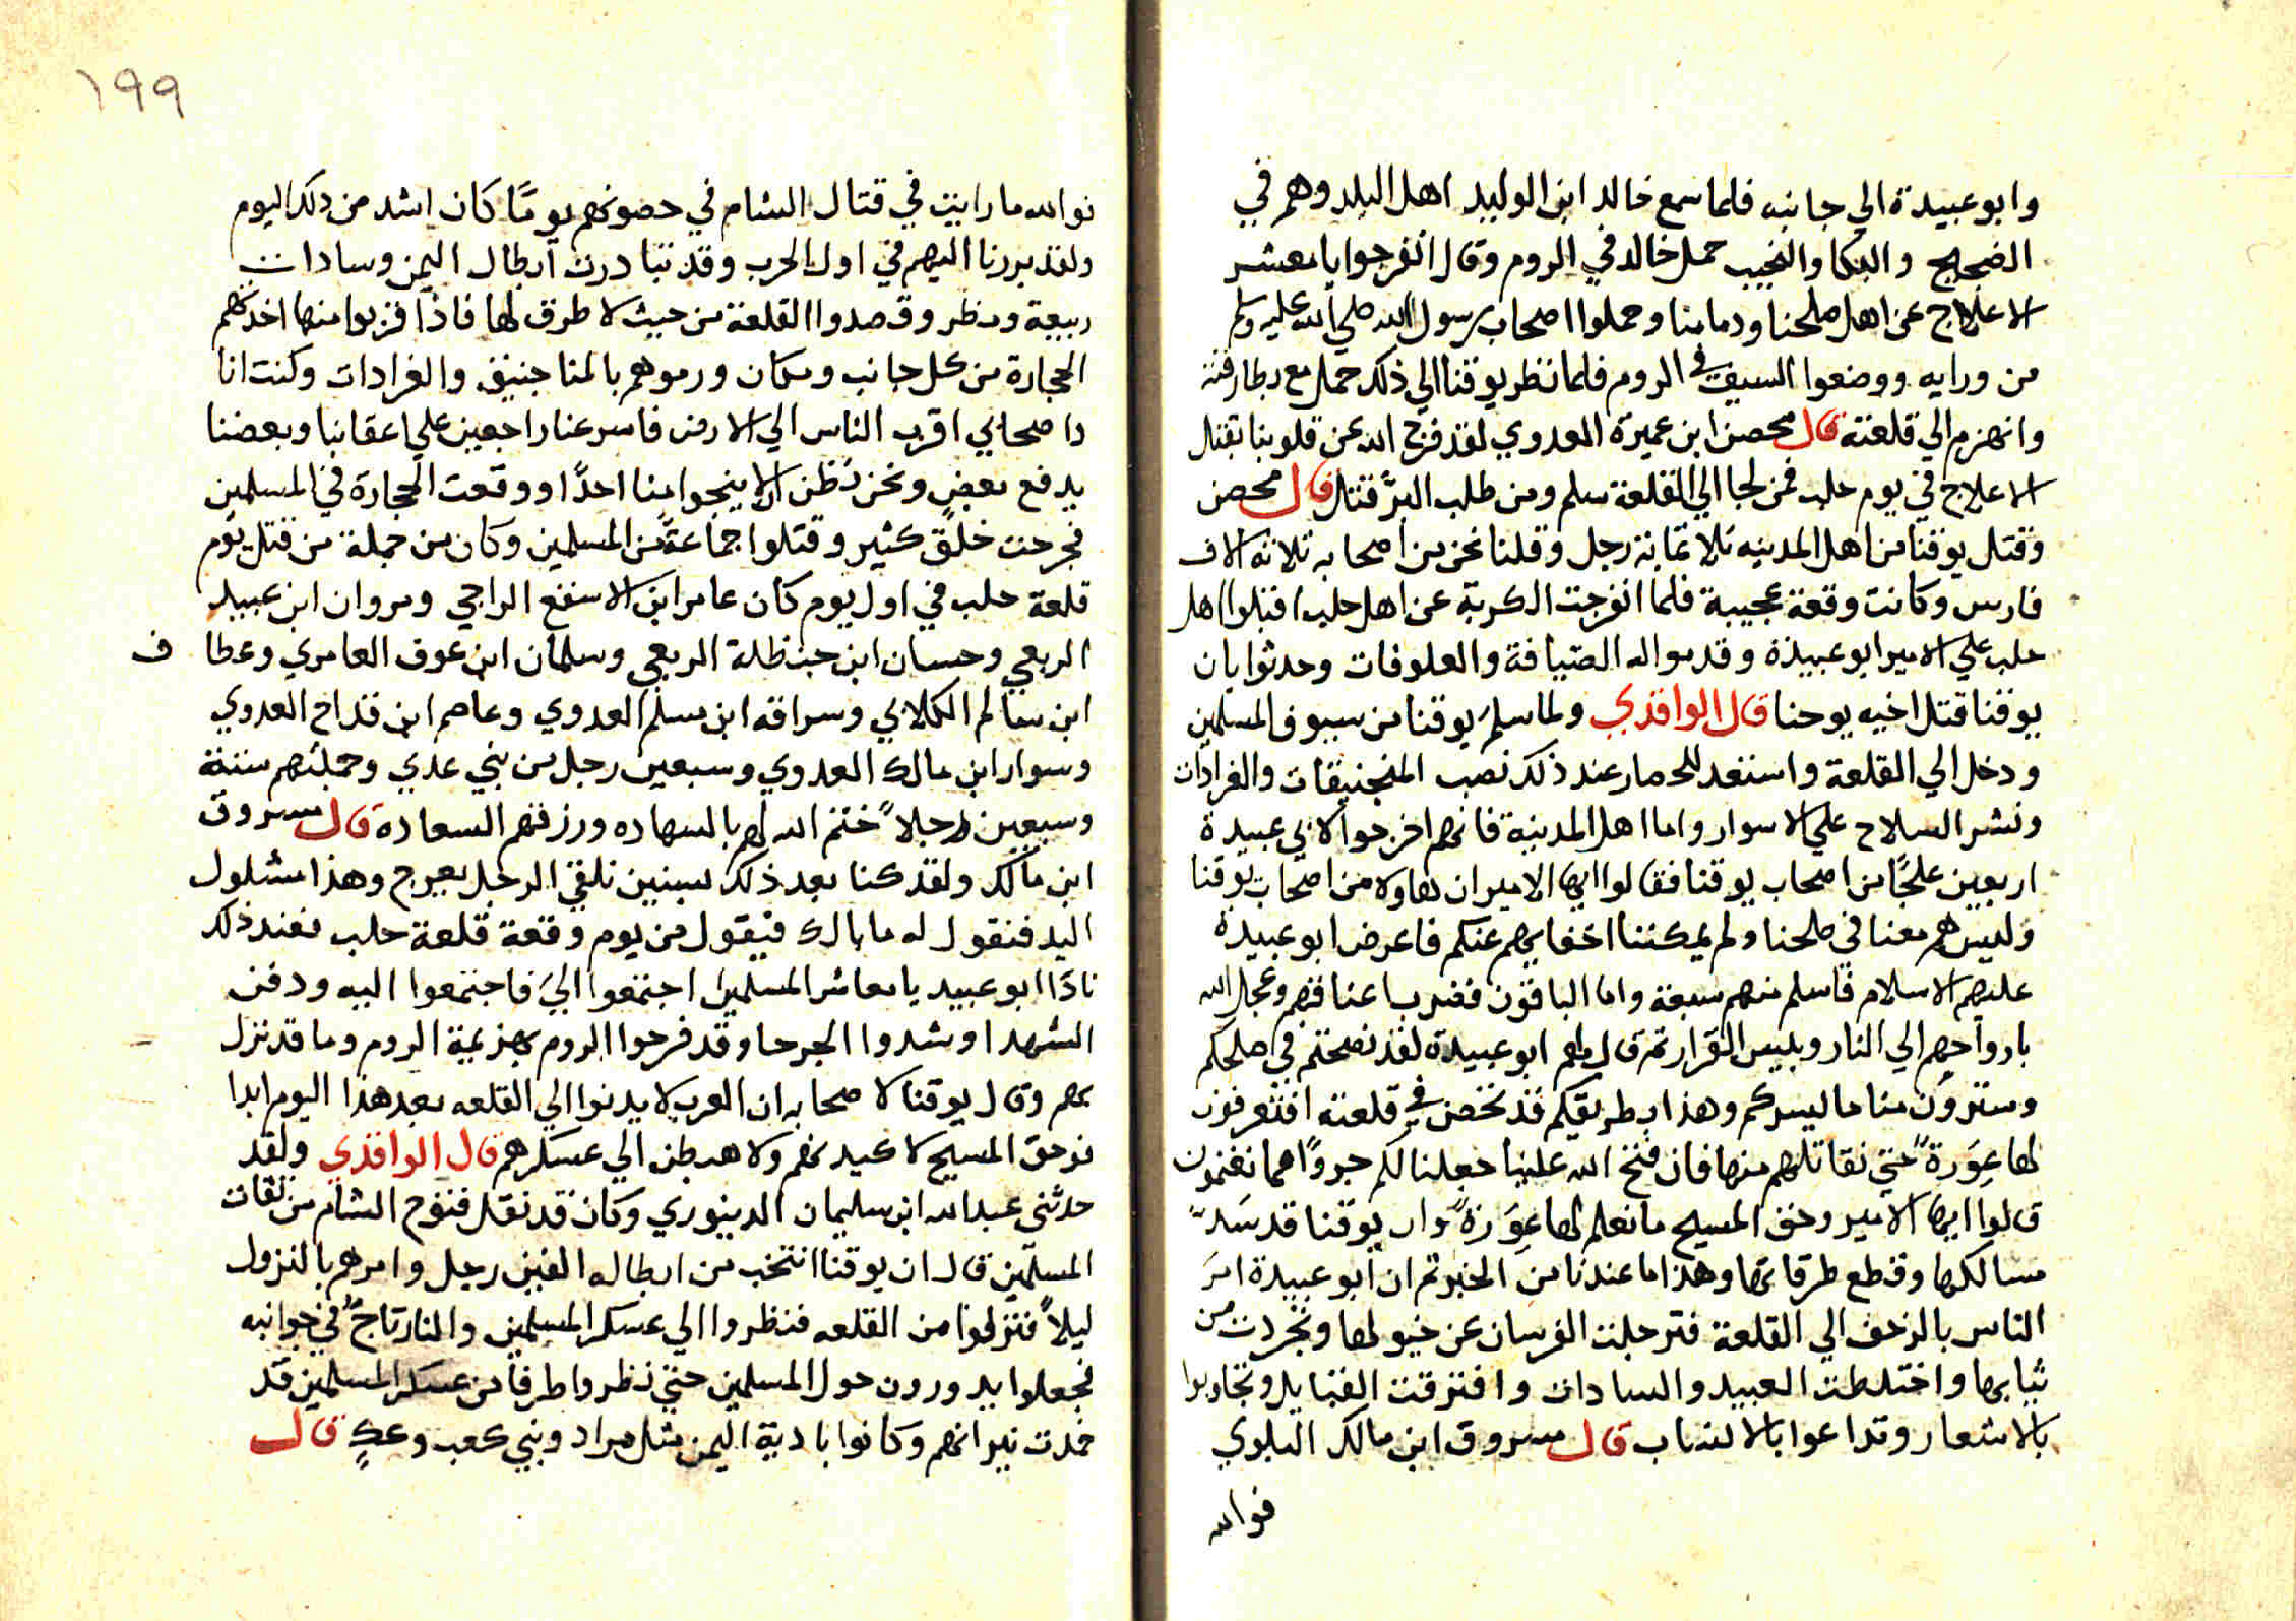 وابو عبيدة الي جانبه فلما سمع خالد ابن الوليد اهل البلد وهم في
الضجيج والبكا والنحيب حمل خالد في الروم وقال انفرجوا يا معشر
الاعلاج عن اهل صلحنا ودمامنا وحملوا اصحاب رسول الله صلي الله عليه وسلم
من ورايه ووضعوا السيف في الروم فلما نظر يوقنا الي ذلك حمل مع بطارقته
وانهزم الي قلعته قال محصن ابن عميرة العدوي لقد فرج الله عن قلوبنا بقتل
الاعلاج في يوم حلب فمن لجا الي القلعة سلم ومن طلب البرّ قتل قال محصن
وقتل يوقنا من اهل المدينه ثلاثماية رجل وقلنا نحن من اصحابه ثلاثه الاف
فارس وكانت وقعة عجيبة فلما انفرجت الكربة عن اهل حلب اقبلوا اهل
حلب علي الامير ابو عبيدة وقدموا له الضيافة والعلوفات وحدثوا بان
يوقنا قتل اخيه يوحنا قال الواقدي ولما سلم يوقنا من سيوف المسلمين
ودخل الي القلعة واستعد للحصار عند ذلك نصب المنجنيقات والعرادات
ونشر السلاح علي الاسوار واما اهل المدينة فانهم اخرجوا لابي عبيدة
اربعين علجًا من اصحاب يوقنا فقالوا ايها الامير ان هاولا من اصحاب يوقنا
وليس هم معنا في صلحنا ولم يمكننا اخفايهم عنكم فاعرض ابو عبيدة
عليهم الاسلام فاسلم منهم سبعة واما الباقون فضرب اعناقهم وعجل الله
بارواحهم الي النار وبيس القرار ثم قال لهم ابو عبيدة لقد نصحتم في صلحكم
وسترون منا ما ليسركم وهذا بطريقكم قد تحصن في قلعته افتعرفون
لها عورةً حتي نقاتلهم منها فان فتح الله علينا جعلنا لكم جزوًا مما نغنمون
قالوا ايها الامير وحق المسيح ما نعلم لها عورةً وان يوقنا قد سدّ
مسالكها وقطع طرقاتها وهذا ما عندنا من الخبر ثم ان ابو عبيدة امر
الناس بالزحف الي القلعة فترجلت الفرسان عن خيولها وتجردت من
ثيابها واختلطت العبيد والسادات وافترقت القبايل وتجاوبوا
بالاشعار وتداعوا بالانساب قال مسروق ابن مالك البلوي
فوالله
١٩٩
فوالله ما رايت في قتال الشام في حصونهم يومًا كان اشد من ذلك اليوم
ولقد برزنا اليهم في اول الحرب وقد تبادرت ابطال اليمن وسادات
ربيعة ومضر وقصدوا القلعة من حيث لا طرق لها فاذا قربوا منها اخذتهم
الحجارة من كل جانب ومكان ورموهم بالمناجنيق والعرادات وكنت انا
واصحابي اقرب الناس الي الارض فاسرعنا راجعين علي اعقابنا وبعضنا
يدفع بعض ونحن نظن الا ينجوا منا احدًا ووقعت الحجارة في المسلمين
فجرحت خلق كثير وقتلوا جماعةً من المسلمين وكان من جملة من قتل يوم
قلعة حلب في اول يوم كان عامر ابن الاسفع الراجي ومروان ابن عبيد
الربعي وحسان ابن حنظلة الربعي وسلمان ابن عوف العامري وعطا ف
ابن سالم الكلابي وسراقه ابن مسلم العدوي وعاصم ابن قداح العدوي
وسوار ابن مالك العدوي وسبعين رجل من بني عدي وجملتهم ستة
وسبعين رجلاً ختم الله لهم بالشهاده ورزقهم السعادة قال مسروق
ابن مالك ولقد كنا بعد ذلك بسنين نلقي الرجل يعرج وهذا مشلول
اليد فنقول له ما بالك فيقول من يوم وقعة قلعة حلب فعند ذلك
نادا ابو عبيد يا معاشر المسلمين اجتمعوا اليّ فاجتمعوا اليه ودفن
الشهدا وشدوا الجرحا وقد فرحوا الروم بهزيمة الروم وما قد نزل
بهم وقال يوقنا لاصحابه ان العرب لا يدنوا الي القلعه بعد هذا اليوم ابدا
فوحق المسيح لاكيدنهم ولاهبطن الي عسكرهم قال الواقدي ولقد
حدثني عبد الله ابن سليمان الدينوري وكان قد نقل فتوح الشام من ثقات
المسلمين قال ان يوقنا انتخب من ابطاله الفين رجل وامرهم بالنزول
ليلاً فنزلوا من القلعه فنظروا الي عسكر المسلمين والنار تاجّ في جوانبه
فجعلوا يدورون حول المسلمين حتي نظروا طرفًا من عسكر المسلمين قد
خمدت نيرانهم وكانوا بادية اليمن مثل مراد وبني كعب وعكٍ قال